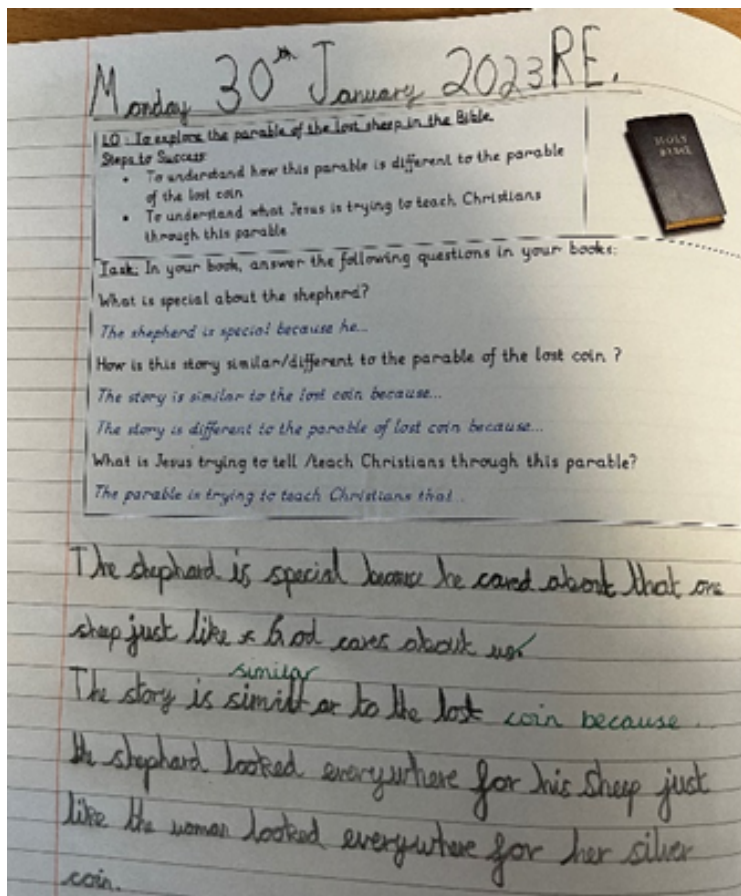 Monday 30th January 2023 RE.
LO: To explore the parable of the lost sheep in the Bible
Steps to Success:
• To understand how this parable is different to the parable
of the lost coin
• To understand what Jesus is trying to teach Christians
through this parable
HOLY
BIBLE
Task: In your book, answer the following questions in your books:
What is special about the shepherd?
The shepherd is special because he...
How is this story similar/different to the parable of the lost coin ?
The story is similar to the lost coin because...
The story is different to the parable of lost coin because...
What is Jesus trying to tell /teach Christians through this parable?
The parable is trying to teach Christians that...
The shephard is special because he cared about that one
sheep just like God cares about us.
similar
The story is to the lost coin because ...
the shephard looked everywhere for his sheep just
like the woman looked everywhere for her silver
coin.